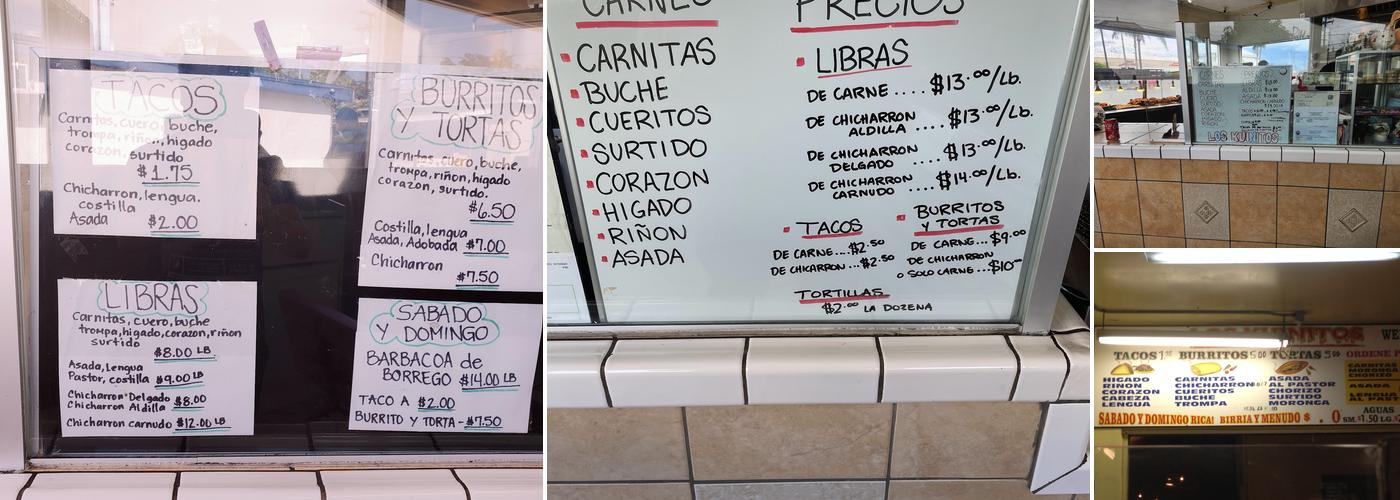 TACOS
Carnitas, cuero, buche,
trompa, riñon, higado
corazon, surtido
$1.75
Chicharron, lengua.
costilla
Asada $2.00
LIBRAS
Carnitas, cuero, buche
trompa, higado, corazon, riñon
surtido
$8.00 LB
Asada, Lengua
Pastor, costilla $9.00 LB
Chicharron Delgado $8.00
Chicharron Aldilla
Chicharron carnudo $12.00 LB
BURRITOS
Y TORTAS
Carnitas, cuero, buche,
trompa, riñon, higado
corazon, surtido.
$6.50
Costilla, lengua
Asada, Adobada $7.00
Chicharron
$7.50
SABADO
Y DOMINGO
BARBACOA de
BORREGO $14.00 LB
TACO A $2.00
BURRITO Y TORTA - $7.50
CARNES
CARNITAS
BUCHE
CUERITOS
SURTIDO
CORAZON
HIGADO
RIÑON
ASADA
PRECIOS
LIBRAS
DE CARNE .... $13.00/Lb.
DE CHICHARRON
ALDILLA .... $13.00/Lb.
DE CHICHARRON
DELGADO .... $13.00/Lb.
DE CHICHARRON
CARNUDO .... $14.00/Lb.
TACOS
DE CARNE...$2.50
DE CHICARRON...$2.50
BURRITOS
Y TORTAS
DE CARNE...$9.00
DE CHICHARRON
O SOLO CARNE...$10
TORTILLAS
$2.00 LA DOZENA
PRECIOS
LOS KUINITOS
LOS KUINITOS WE
TACOS BURRITOS 5.00 TORTAS 5.00 ORDENE
HIGADO
RIÑON
CORAZON
CABEZA
LENGUA
CARNITAS
CHICHARRON
CUERITOS
BUCHE
TROMPA
ASADA
AL PASTOR
CHORIZO
SURTIDO
MORONGA
CARNITAS
MORONGA
CHORIZO
ASADA
LENGUA
AL PAST
SABADO Y DOMINGO RICA! BIRRIA Y MENUDO $ . 0
AGUAS
SM. $1.50 LG.